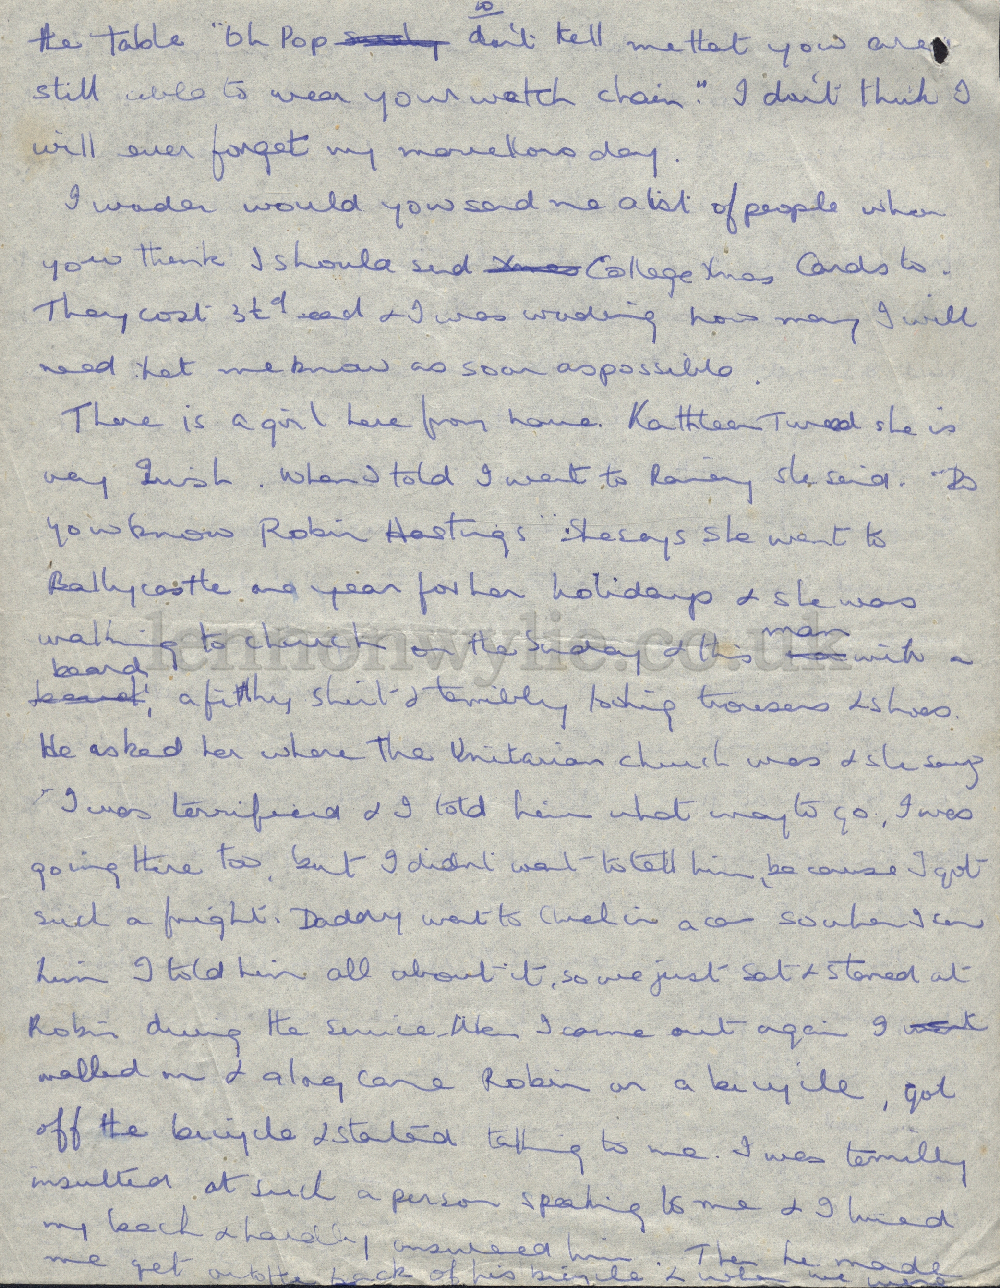 the table "Oh Pop don't tell me that you are
still able to wear your watch chain." I don't think I
will ever forget my marvellous day.
I wonder would you send me a list of people whom
you think I should send Xmas College Xmas Cards to.
They cost 3½d each & I was wondering how many I will
need. Let me know as soon as possible.
There is a girl here from home. Kathleen Tweed she is
very Irish. When I told I went to Rainey she said. "Do
you know Robin Hastings" She says she went to
Ballycastle one year for her holidays & she was
walking to church on the Sunday & this man with a
beard, a filthy shirt & terribly looking trousers & shoes.
He asked her where the Unitarian church was & she says
"I was terrified & I told him what way to go, I was
going there too, but I didn't want to tell him, because I got
such a fright. Daddy went to Church in a car so when I saw
him I told him all about it, so we just sat & stared at
Robin during the service. When I came out again I went
walked on & along came Robin on a bicycle, got
off the bicycle & started talking to me. I was terribly
insulted at such a person speaking to me & I turned
my back & hardly answered him. Then he made
me get on to the back of his bicycle & when we
lennonwylie.co.uk